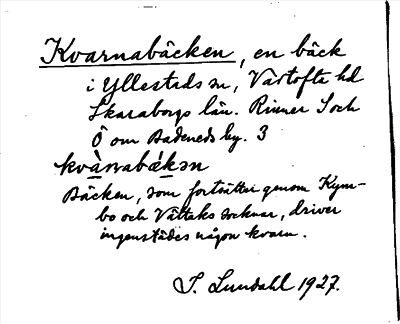 Kvarnabäcken, en bäck
i Yllestads sn, Vartofta hd
Skaraborgs län. Rinner S och
Ö om Badeneds by. 3
kvàrnabǽkən
Bäcken, som fortsätter genom Kym-
bo och Vättaks socknar, driver
ingenstädes någon kvarn.
S. Lundahl 1927.